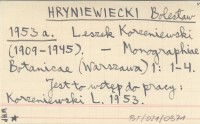 HRYNIEWIECKI Bolesław
1953 a. Leszek Korzeniewski
(1909-1945). — Monographiae
Botanicae (Warszawa) 1: 1-4.
Jest to wstęp do pracy:
Korzeniewski L. 1953.